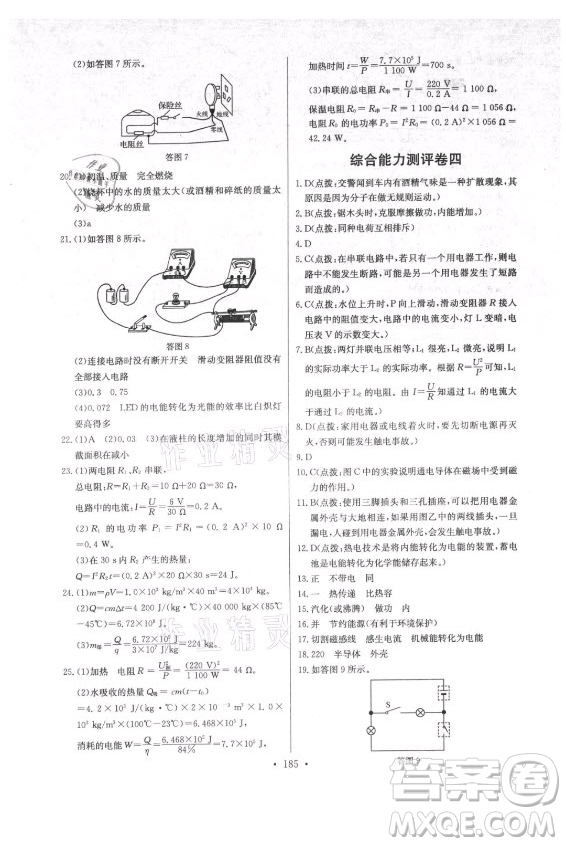 (2)如答图 7 所示。
保险丝
火线
地线
零线
电阻丝
答图 7
20.(1)初温、质量 完全燃烧
(2)烧杯中的水的质量太大(或酒精和碎纸的质量太小) 减少水的质量
(3)a
21.(1)如答图 8 所示。
答图 8
(2)连接电路时没有断开开关 滑动变阻器阻值没有
全部接入电路
(3)0.3 0.75
(4)0.072 LED 的电能转化为光能的效率比白炽灯
要高得多
22.(1)A (2)0.03 (3)在液柱的长度增加的同时其横
截面积在减小
23.(1)两电阻 R₁、R₂ 串联,
总电阻,
电路中的电流:I=U/R=6 V/30 Ω=0.2 A。
(2) R₁ 的电功率 P₁=I²R₁=(0.2 A)²×10 Ω
=0.4 W。
(3)在 30 s 内 R₂ 产生的热量:
Q=I²R₂t=(0.2 A)²×20 Ω×30 s=24 J。
24.(1)m=ρV=1.0×10³ kg/m³×40 m³=4×10⁴ kg。
(2)Q=cmΔt=4 200 J/(kg·℃)×40 000 kg×(85℃
-45℃)=6.72×10⁹ J。
(3)m煤=Q/q=6.72×10⁹ J/3×10⁷ J/kg=224 kg。
25.(1)加热 电阻 R=U²/P=(220 V)²/1 100 W=44 Ω。
(2)水吸收的热量 Q吸=cm(t-t₀)
=4.2×10³ J/(kg·℃)×2×10⁻³ m³×1.0×10³
kg/m³×(100℃-23℃)=6.468×10⁵ J,
消耗的电能 W=Q/η=6.468×10⁵ J/84%=7.7×10⁵ J,
加热时间 t=W/P=7.7×10⁵ J/1 100 W=700 s。
(3)串联的总电阻 R串=U/I=220 V/0.2 A=1 100 Ω,
保温电阻 R₀=R串-R=1 100 Ω-44 Ω=1 056 Ω,
电阻 R₀ 的实际功率 P₀=I²R₀=(0.2 A)²×1 056 Ω=
42.24 W。
综合能力测评卷四
1.D(点拨:交警闻到车内有酒精气味是一种扩散现象,其
原因是因为分子在做无规则运动。)
2.B(点拨:锯木头时,克服摩擦做功,内能增加。)
3.D(点拨:同种电荷互相排斥)
4.D
5.C(点拨:在串联电路中,若只有一个用电器工作,则电
路中不可能发生断路,另一个用电器两端发生了短路
而造成的。)
6.C(点拨:水位上升时,P 向上滑动,滑动变阻器 R 接入
电路中的阻值变大,电路中的电流变小,灯 L 变暗,电
压表 V 的示数变大。)
7.B(点拨:两灯并联电压相等,L₁ 比 L₂ 亮,说明 L₁
的实际功率大于 L₂ 的实际功率。由 P=U²/R 可知,L₁
的电阻小于 L₂ 的电阻,由 I=U/R 可知通过 L₁ 的电流大
于通过 L₂ 的电流。)
8.D(点拨:家用电器或电线着火时,要先切断电源再灭
火,否则可能发生触电事故。)
9.D
10.C(点拨:图 C 中的实验说明通电导体在磁场中受到磁
力的作用。)
11.B(点拨:使用三脚插头和三孔插座,可以使用电器金
属外壳与大地相连,如果用图乙中的两线插头,一旦用
电器金属外壳带电,人接触金属外壳,可能发生触电事
故。)
12.D(点拨:热电技术是将内能转化为电能的装置,蓄电
池是电能转化为化学能储存起来。)
13.正 不带电 同
14.一 热传递 比热容
15.汽化(或沸腾) 做功 内
16.并 节约能源(有利于环境保护)
17.切割磁感线 感生电流 机械能转化为电能
18.220 半导体 外壳
19.如答图 9 所示。
S
答图 9
· 185 ·
作业精灵
作业精灵